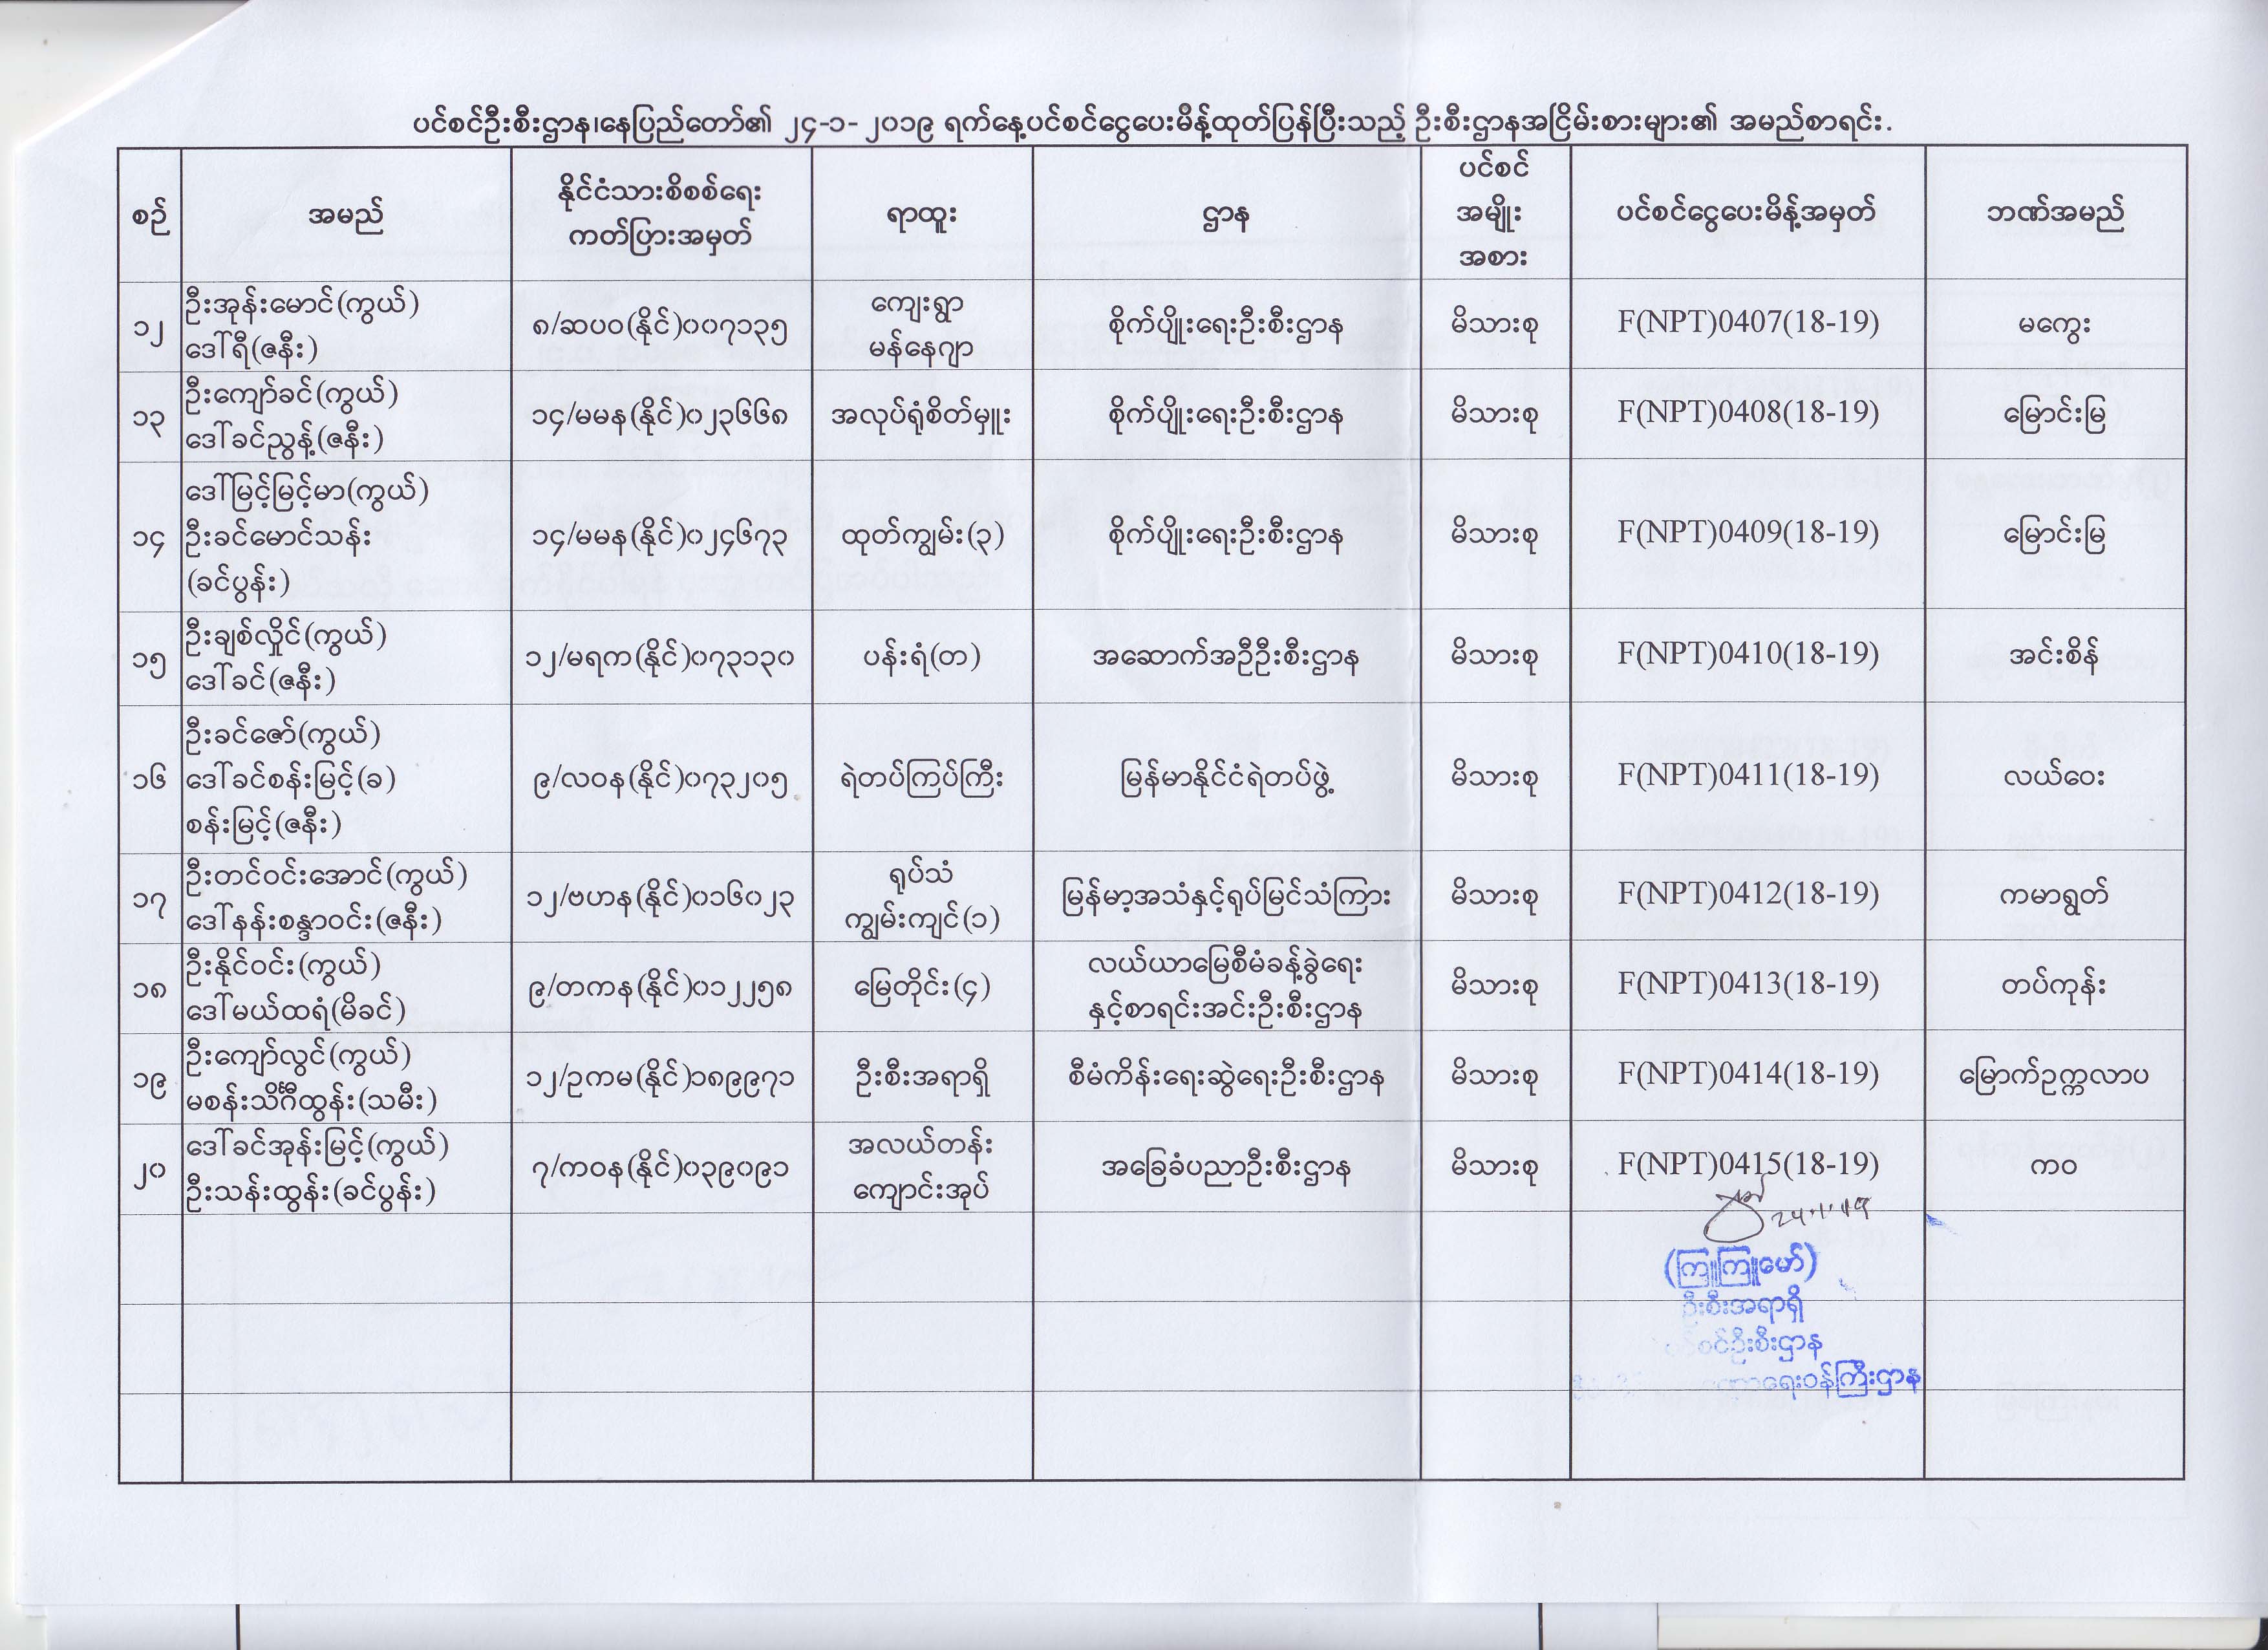 ပင်စင်ဦးစီးဌာန၊နေပြည်တော်၏ ၂၄-၁-၂၀၁၉ ရက်နေ့ပင်စင်ငွေပေးမိန့်ထုတ်ပြန်ပြီးသည့် ဦးစီးဌာနအငြိမ်းစားများ၏ အမည်စာရင်း.
စဉ် အမည် နိုင်ငံသားစိစစ်ရေး ကတ်ပြားအမှတ် ရာထူး ဌာန ပင်စင် အမျိုး အစား ပင်စင်ငွေပေးမိန့်အမှတ် ဘဏ်အမည်
၁၂ ဦးအုန်းမောင်(ကွယ်) ဒေါ်ရီ(ဇနီး) ၈/ဆပဝ(နိုင်)၀၀၇၁၃၅ ကျေးရွာ မန်နေဂျာ စိုက်ပျိုးရေးဦးစီးဌာန မိသားစု F(NPT)0407(18-19) မကွေး
၁၃ ဦးကျော်ခင်(ကွယ်) ဒေါ်ခင်ညွန့်(ဇနီး) ၁၄/မမန(နိုင်)၀၂၃၆၆၈ အလုပ်ရုံစိတ်မှူး စိုက်ပျိုးရေးဦးစီးဌာန မိသားစု F(NPT)0408(18-19) မြောင်းမြ
၁၄ ဒေါ်မြင့်မြင့်မာ(ကွယ်) ဦးခင်မောင်သန်း (ခင်ပွန်း) ၁၄/မမန(နိုင်)၀၂၄၆၇၃ ထုတ်ကျွမ်း(၃) စိုက်ပျိုးရေးဦးစီးဌာန မိသားစု F(NPT)0409(18-19) မြောင်းမြ
၁၅ ဦးချစ်လှိုင်(ကွယ်) ဒေါ်ခင်(ဇနီး) ၁၂/မရက(နိုင်)၀၇၃၁၃၀ ပန်းရံ(တ) အဆောက်အဦဦးစီးဌာန မိသားစု F(NPT)0410(18-19) အင်းစိန်
၁၆ ဦးခင်ဇော်(ကွယ်) ဒေါ်ခင်စန်းမြင့်(ခ) စန်းမြင့်(ဇနီး) ၉/လဝန(နိုင်)၀၇၃၂၀၅ ရဲတပ်ကြပ်ကြီး မြန်မာနိုင်ငံရဲတပ်ဖွဲ့ မိသားစု F(NPT)0411(18-19) လယ်ဝေး
၁၇ ဦးတင်ဝင်းအောင်(ကွယ်) ဒေါ်နန်းစန္ဒာဝင်း(ဇနီး) ၁၂/ဗဟန(နိုင်)၀၁၆၀၂၃ ရုပ်သံ ကျွမ်းကျင်(၁) မြန်မာ့အသံနှင့်ရုပ်မြင်သံကြား မိသားစု F(NPT)0412(18-19) ကမာရွတ်
၁၈ ဦးနိုင်ဝင်း(ကွယ်) ဒေါ်မယ်ထရံ(မိခင်) ၉/တကန(နိုင်)၀၁၂၂၅၈ မြေတိုင်း(၄) လယ်ယာမြေစီမံခန့်ခွဲရေး နှင့်စာရင်းအင်းဦးစီးဌာန မိသားစု F(NPT)0413(18-19) တပ်ကုန်း
၁၉ ဦးကျော်လွင်(ကွယ်) မစန်းသိင်္ဂီထွန်း(သမီး) ၁၂/ဥကမ(နိုင်)၁၈၉၉၇၁ ဦးစီးအရာရှိ စီမံကိန်းရေးဆွဲရေးဦးစီးဌာန မိသားစု F(NPT)0414(18-19) မြောက်ဥက္ကလာပ
၂၀ ဒေါ်ခင်အုန်းမြင့်(ကွယ်) ဦးသန်းထွန်း(ခင်ပွန်း) ၇/ကဝန(နိုင်)၀၃၉၀၉၁ အလယ်တန်း ကျောင်းအုပ် အခြေခံပညာဦးစီးဌာန မိသားစု F(NPT)0415(18-19) ကဝ
24.1.19
(ကြူကြူမော်)
ဦးစီးအရာရှိ
ဦးစီးဌာန
ရေးဝန်ကြီးဌာန